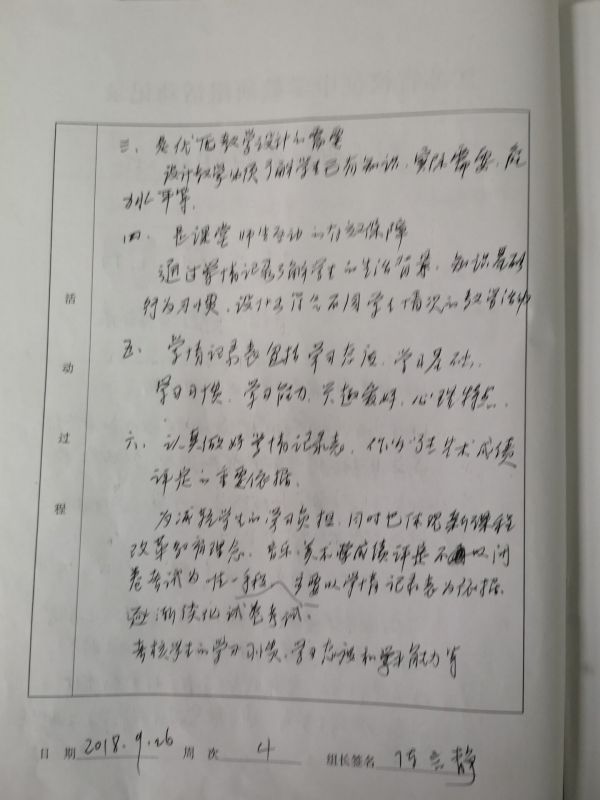 三、是优化教学设计的需要
设计教学必须了解学生已有知识,实际需要,能
力水平等.
四、是课堂师生互动的有效保障
通过学情记录了解学生的生活背景,知识基础
行为习惯,设计出符合不同学生情况的教学活动
五、学情记录表包括学习态度,学习基础,
学习习惯,学习能力,兴趣爱好,心理特点.
六、认真做好学情记录表,作为学生学术成绩
评定的重要依据.
为减轻学生的学习负担,同时也体现新课程
改革教育理念,音乐、美术学成绩评定不以问
卷考试为唯一手段,主要以学情记录表为依据,
逐渐淡化试卷考试.
考核学生的学习习惯、学习态度和学习能力等
活动过程
日期 2018.9.26 周次 4 组长签名 静